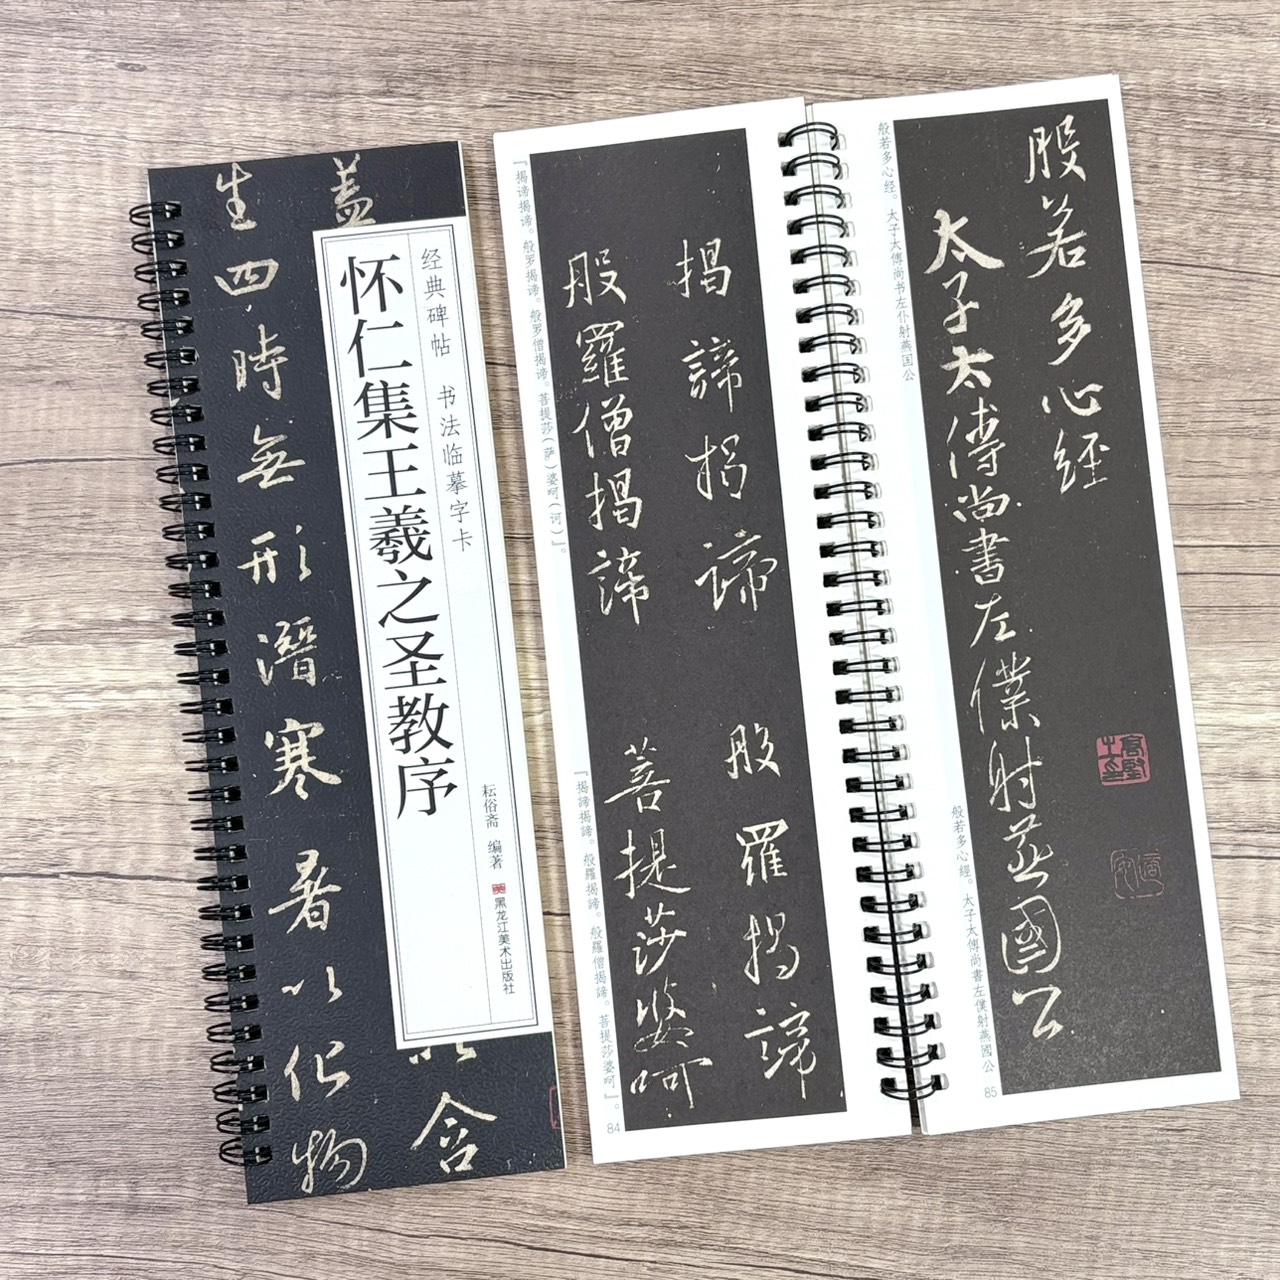 经典碑帖 书法临摹字卡
怀仁集王羲之圣教序
耘俗斋 编著
黑龙江美术出版社
盖
生四時無形潛寒暑以化物
含
揭諦揭諦
般羅揭諦
般羅僧揭諦
菩提莎婆呵
『揭谛揭谛。般罗揭谛。般罗僧揭谛。菩提莎（萨）婆呵（诃）』。
『揭諦揭諦。般羅揭諦。般羅僧揭諦。菩提莎婆呵』。
84
般若多心経
太子太傅尚書左僕射燕國公
般若多心经。太子太傅尚书左仆射燕国公
般若多心經。太子太傅尚書左僕射燕國公
85